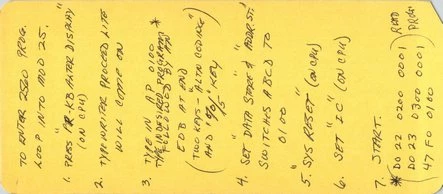 TO ENTER 2520 PROG.
LOOP INTO ADD 25.
1. PRESS "PR-KB ALTER DISPLAY"
(ON CPU)
2. TYPEWRITER PROCEED LITE
WILL COME ON
3. TYPE IN AP 0100
TYPE IN DESIRED PROGRAM *
FOLLOWED BY AN
EOB AT END
(TWO KEYS - "ALTN CODING"
AND "0/5" KEY)
4. SET "DATA STORE" & "ADDR ST."
SWITCHES ABCD TO
0100
5. "SYS RESET" (ON CPU)
6. SET "IC" (ON CPU)
7. START.
* DO 22 0200 0001 ) READ
DO 23 0300 0001 ) PROG.
47 F0 0100